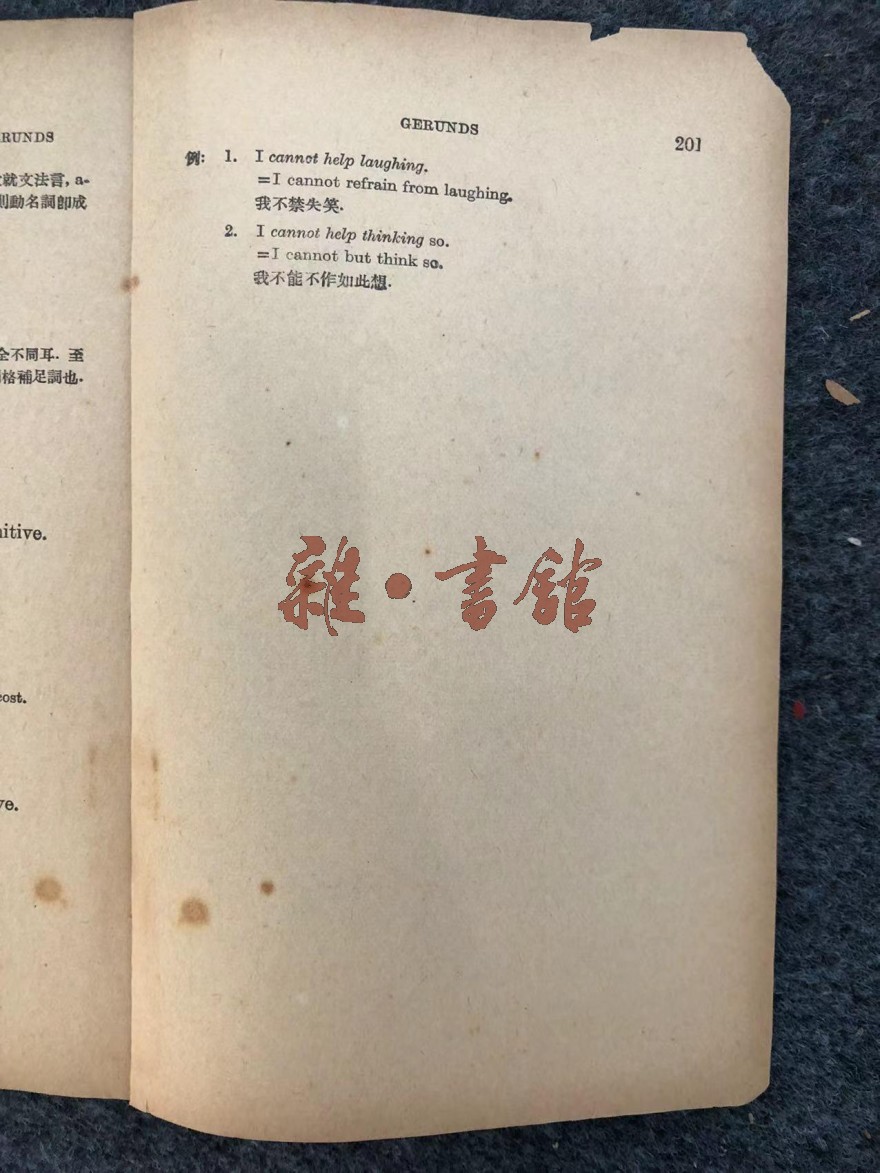 RUNDS
就文法言, a-
則動名詞卽成
全不同耳. 至
格補足詞也.
itive.
cost.
ve.
GERUNDS
201
例: 1. I cannot help laughing.
=I cannot refrain from laughing.
我不禁失笑.
2. I cannot help thinking so.
=I cannot but think so.
我不能不作如此想.
雜·書館